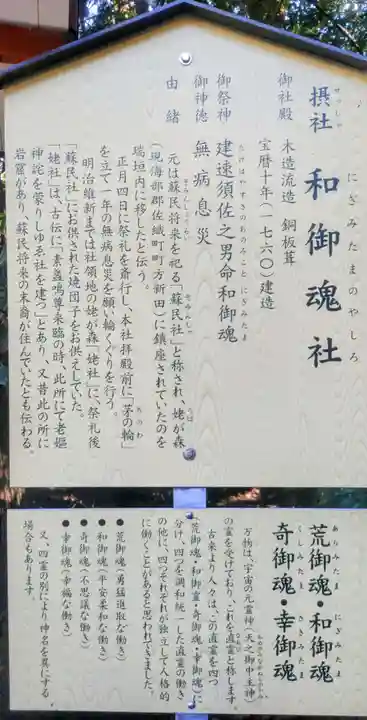 摂社 和御魂社
せっしゃ にぎみたまのやしろ
御社殿 木造流造 銅板葺
宝暦十年(一七六〇)建造
御祭神 建速須佐之男命和御魂
たけはやすさのおのみことにぎみたま
御神徳 無病息災
由緒
元は蘇民将来を祀る「蘇民社」と称され、姥が森
(現海部郡佐織町町方新田)に鎮座されていたのを
瑞垣内に移したと伝う。
正月四日に祭礼を斎行し、本社拝殿前に「茅の輪」
を立て一年の無病息災を願い輪くぐりを行う。
明治維新までは社領地の姥が森「姥社」に、祭礼後
「蘇民社」にお供された焼団子をお供えしていた。
「姥社」は、古伝に「素盞嗚尊来臨の時、此所にて老嫗
神詫を蒙りしゆゑ社を建つ」とあり、又昔此の所に
岩窟があり、蘇民将来の末裔が住んでいたとも伝わる。
荒御魂・和御魂
あらみたま にぎみたま
奇御魂・幸御魂
くしみたま さきみたま
万物は、宇宙の元霊神(天之御中主神)
の霊を受けており、これを直霊と称します。
古来より人々は、この直霊を四つ
(荒御魂・和御霊・奇御魂・幸御魂)に
分け、四つを調和統一した直霊の働き
の他に、四つそれぞれが独立して人格的
に働くことがあると思われてきました。
●荒御魂(勇猛進取な働き)
●和御魂(平安柔和な働き)
●奇御魂(不思議な働き)
●幸御魂(幸福な働き)
又、四霊の別により神名を異にする
場合もあります。